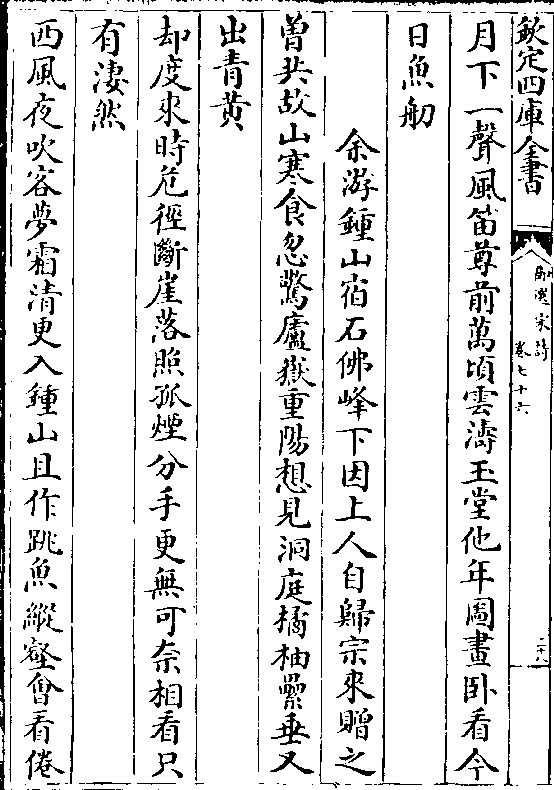 欽定四庫全書
御選宋詩
卷七十六
二十八
月下一聲風笛尊前萬頃雲濤玉堂他年圖畫卧看今
日魚舠
余游鍾山宿石佛峰下因上人自歸宗來贈之
曽共故山寒食忽驚廬嶽重陽想見洞庭橘柚纍垂又
出青黄
却度來時危徑斷崖落照孤煙分手更無可奈相看只
有淒然
西風夜吹客夢霜清更入鍾山且作跳魚縱壑會看倦